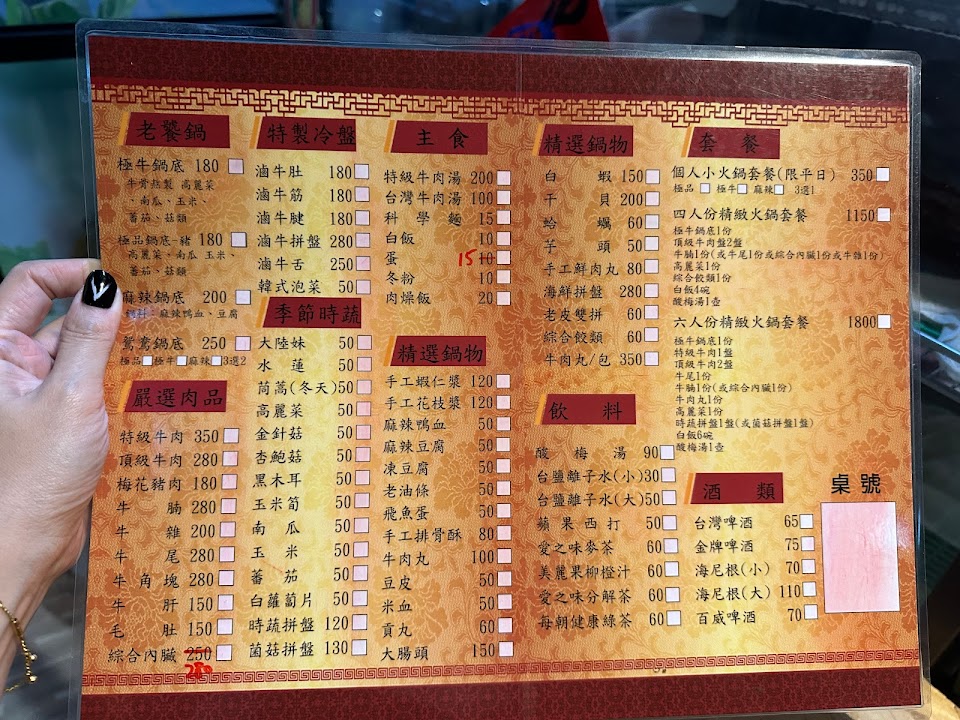 老饕鍋
極牛鍋底 180
牛骨熬製 高麗菜
、南瓜、玉米、
番茄、菇類
極品鍋底-豬 180
高麗菜、南瓜 玉米、
番茄、菇類
麻辣鍋底 200
:麻辣鴨血、豆腐
鴛鴦鍋底 250
極品 極牛 麻辣 3選2
嚴選肉品
特級牛肉 350
頂級牛肉 280
梅花豬肉 180
牛腩 280
牛雜 200
牛尾 280
牛角塊 280
牛肝 150
毛肚 150
綜合內臟 250
280
特製冷盤
滷牛肚 180
滷牛筋 180
滷牛腱 180
滷牛拼盤 280
滷牛舌 250
韓式泡菜 50
季節時蔬
大陸妹 50
水蓮 50
茼蒿(冬天) 50
高麗菜 50
金針菇 50
杏鮑菇 50
黑木耳 50
玉米筍 50
南瓜 50
玉米 50
蕃茄 50
白蘿蔔片 50
時蔬拼盤 120
菌菇拼盤 130
主食
特級牛肉湯 200
台灣牛肉湯 100
科學麵 15
白飯 10
蛋 15 10
冬粉 10
肉燥飯 20
精選鍋物
手工蝦仁漿 120
手工花枝漿 120
麻辣鴨血 50
麻辣豆腐 50
凍豆腐 50
老油條 50
飛魚蛋 50
手工排骨酥 80
牛肉丸 100
豆皮 50
米血 50
貢丸 60
大腸頭 150
精選鍋物
白蝦 150
干貝 200
蛤蠣 60
芋頭 50
手工鮮肉丸 80
海鮮拼盤 280
老皮雙拼 60
綜合餃類 60
牛肉丸/包 350
飲料
酸梅湯 90
台鹽離子水(小) 30
台鹽離子水(大) 50
蘋果西打 50
愛之味麥茶 60
美麗果柳橙汁 60
愛之味分解茶 60
每朝健康綠茶 60
套餐
個人小火鍋套餐(限平日) 350
極品 極牛 麻辣 3選1
四人份精緻火鍋套餐 1150
極牛鍋底1份
頂級牛肉盤2盤
牛腩1份(或牛尾1份或綜合內臟1份或牛雜1份)
高麗菜1份
綜合餃類1份
白飯4碗
酸梅湯1壺
六人份精緻火鍋套餐 1800
極牛鍋底1份
特級牛肉1盤
頂級牛肉2盤
牛尾1份
牛腩1份(或綜合內臟1份)
牛肉丸1份
高麗菜1份
時蔬拼盤1盤(或菌菇拼盤1盤)
白飯6碗
酸梅湯1壺
酒類
台灣啤酒 65
金牌啤酒 75
海尼根(小) 70
海尼根(大) 110
百威啤酒 70
桌號